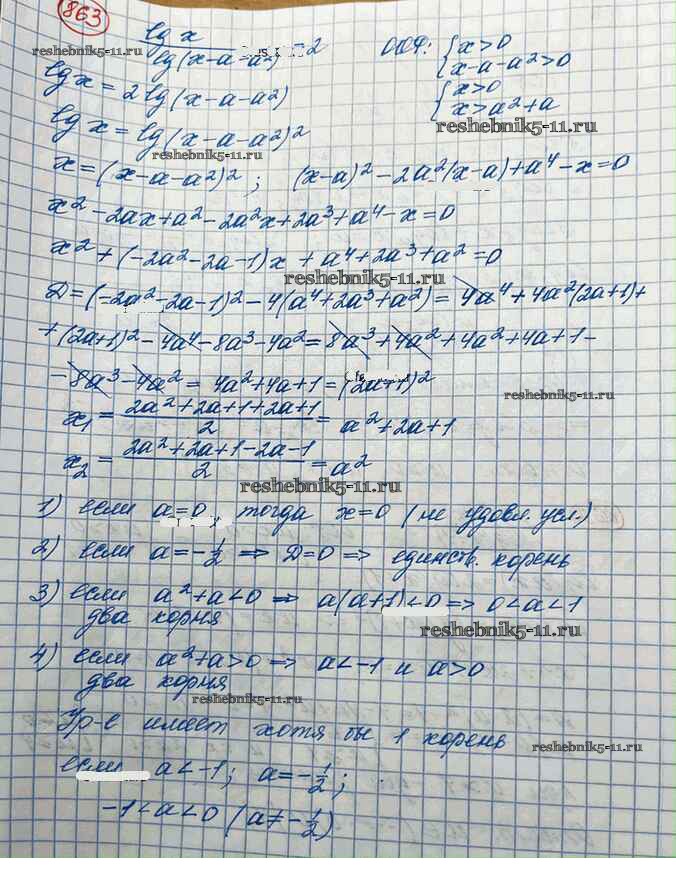 863
lg x / lg(x-a-a²) = 2
ООФ: { x>0
x-a-a²>0
reshebnik5-11.ru
lg x = 2 lg(x-a-a²)
{ x>0
x>a²+a
reshebnik5-11.ru
lg x = lg(x-a-a²)²
reshebnik5-11.ru
x=(x-a-a²)² ; (x-a)²-2a²(x-a)+a⁴-x=0
x²-2ax+a²-2a²x+2a³+a⁴-x=0
x²+(-2a²-2a-1)x+a⁴+2a³+a²=0
reshebnik5-11.ru
D=(-2a²-2a-1)²-4(a⁴+2a³+a²)=4a⁴+4a²(2a+1)+
+(2a+1)²-4a⁴-8a³-4a²=8a³+4a²+4a²+4a+1-
-8a³-4a²=4a²+4a+1=(2a+1)²
reshebnik5-11.ru
x₁=(2a²+2a+1+2a+1)/2=a²+2a+1
x₂=(2a²+2a+1-2a-1)/2=a²
reshebnik5-11.ru
1) если a=0, тогда x=0 (не удовл. усл.)
2) если a=-1/2 ⇒ D=0 ⇒ единств. корень
3) если a²+a<0 ⇒ a(a+1)<0 ⇒ 0<a<1
два корня
reshebnik5-11.ru
4) если a²+a>0 ⇒ a<-1 и a>0
два корня
reshebnik5-11.ru
Ур-е имеет хотя бы 1 корень
reshebnik5-11.ru
если a<-1; a=-1/2;
-1<a<0 (a≠-1/2)